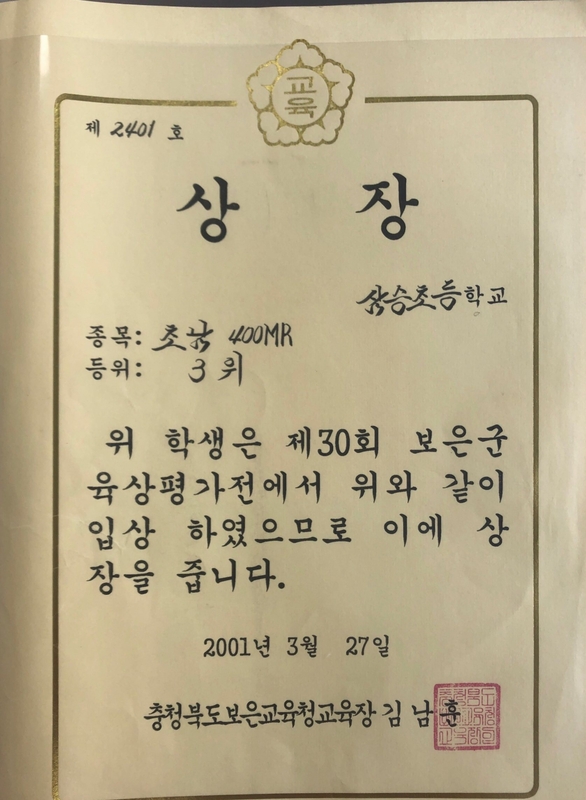 교육
제 2401 호
상 장
삼승초등학교
종목: 초남 400MR
등위: 3 위
위 학생은 제30회 보은군
육상평가전에서 위와 같이
입상 하였으므로 이에 상
장을 줍니다.
2001년 3월 27일
충청북도보은교육청교육장 김남훈